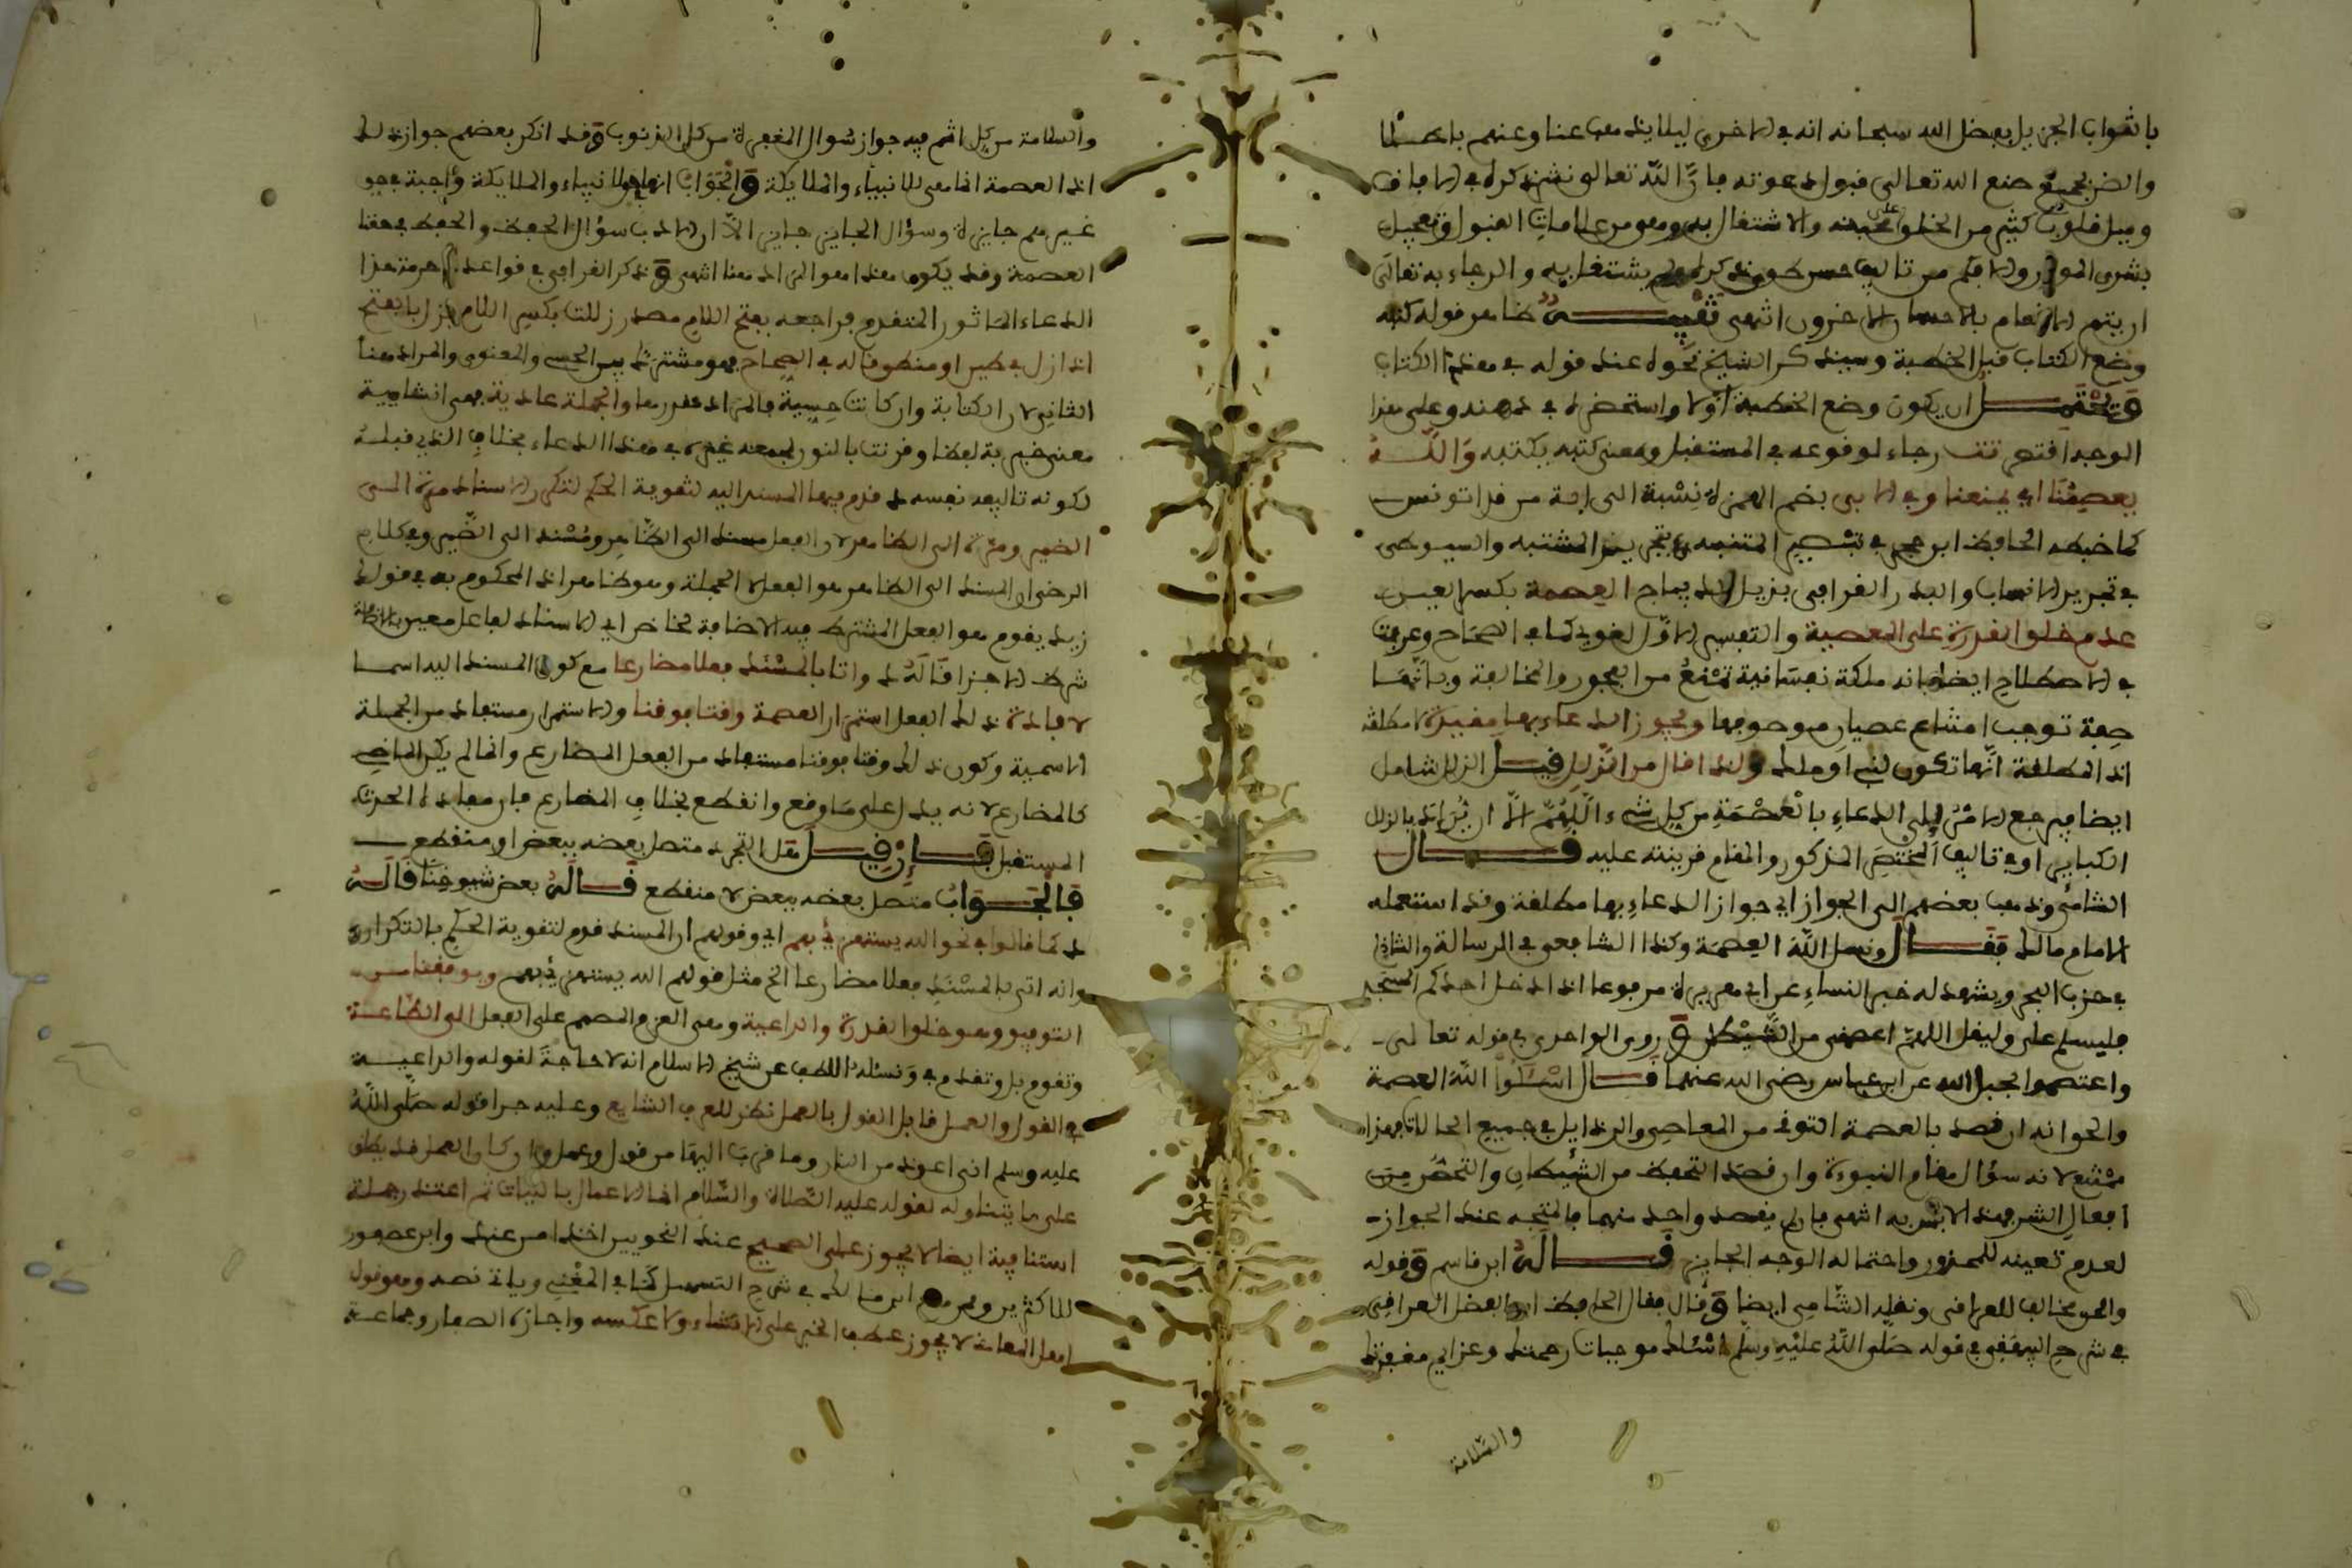 بالثواب الجزيل بفضل الله سبحانه انه في الاخرى ليلا يذهب عنا وعنهم باطلا
والضن بجميع صنع الله تعالى قبول دعوته فان الله تعالى نشر ذكره في الافاق
وميل قلوب كثير من الخلق على محبته والاشتغال به وهو من علامات القبول وتعجيل
بشرى المومن والا فكم من تاليف حسن طوي ذكره ولم يشتغل به والرجاء به تعالى
ان يتم الانعام بالاحسان الاخروي انتهى تنبيه ظاهر قوله كتبه
وضع الكتاب قبل الخطبة وسيذكر الشيخ نحوه عند قوله في هذا الكتاب
ويحتمل ان يكون وضع الخطبة اولا واستحضره في ذهنه وعلى هذا
الوجه اقتصر تت رجاء لوقوعه في المستقبل ومعنى كتبه يكتبه والله
يعصمنا اي يمنعنا وفي الابي بضم الهمزة نسبة الى ابة من قرى تونس
كما ضبطه الحافظ ابن حجر في تبصير المنتبه في تحرير المشتبه والسيوطي
في تحرير الانساب والبدر القرافي بذيل الديباج العصمة بكسر العين
عدم خلق القدرة على المعصية والتفسير الاول لغوي كما في الصحاح وعرفت
في الاصطلاح ايضا بانه ملكة نفسانية تمنع من الفجور والمخالفة وبانها
صفة توجب امتناع عصيان موصوفها ويجوز الدعاء بها مقيدة لا مطلقة
اذ المطلقة انما تكون لنبي او ملك ولذا قال من الزلل قيل الزلل شامل
ايضا فيرجع الامر الى الدعاء بالعصمة من كل شيء اللهم الا ان يراد بالزلل
الكباير او في تاليف المختصر المذكور والمقام قرينته عليه قال
الشامي وذهب بعضهم الى الجواز اي جواز الدعاء بها مطلقة وقد استعمله
الامام مالك فقال ونسل الله العصمة وكذا الشافعي في الرسالة والشاذلي
في حزب البحر ويشهد له خبر النساء عن ابي هريرة مرفوعا اذا دخل احدكم المسجد
فليسلم علي وليقل اللهم اعصمني من الشيطن وروى الواحدي في قوله تعالى
واعتصموا بحبل الله عن ابن عباس رضي الله عنهما قال اسئلوا الله العصمة
والحق انه ان قصد بالعصمة التوقي من المعاصي والرذايل في جميع الحالات فهذا
ممتنع لانه سؤال مقام النبوءة وان قصد التحفظ من الشيطان والتحصن من
افعال الشر فهذا لا باس به انتهى فان لم يقصد واحد منهما فالمتجه عند الجواز
لعدم تعينه للمحذور واحتماله الوجه الجايز قاله ابن قاسم وقوله
والحق مخالف للعراقي ونقله الشامي ايضا وقال فقال الحافظ ابو الفضل العراقي
في شرح البيهقي في قوله صلى الله عليه وسلم اسئلك موجبات رحمتك وعزايم مغفرتك
والسلامة
والسلامة من كل اثم فيه جواز سؤال المغفرة من كل الذنوب وقد انكر بعضهم جواز ذلك
اذ العصمة انما هي للانبياء والملايكة والجواب انها للانبياء والملايكة واجبة وفي حق
غيرهم جايزة وسؤال الجايز جايز الا ان الادب سؤال الحفظ والحفظ في حقنا
العصمة وقد يكون هذا هو المراد هنا انتهى وذكر القرافي في قواعده حرمة هذا
الدعاء الماثور المتقدم فراجعه بفتح اللام مصدر زللت بكسر اللام يزل بالفتح
اذا زل في طين او منطق قاله في الصحاح فهو مشترك بين الحسي والمعنوي والمراد هنا
الثاني لان الكتابة وان كانت حسية فالمراد مقررها والجملة عادية فهي انشايية
معنى خبرية لفظا وقرنت بالنون لجمعه غيره في هذا الدعاء بخلاف الذي قبله
لكونه تاليفه نفسه قدم فيها المسند اليه لتقوية الحكم لتكرر الاسناد مرة الى
الضمير ومرة الى الظاهر لان الفعل مسند الى الظاهر ومسند الى الضمير وفي كلام
الرضي ان المسند الى الظاهر هو الفعل لا الجملة وهو ظاهر اذ المحكوم به في قولك
زيد يقوم هو الفعل المشترك فيه الاضافة
شرط الاجزا قاله واتا بالمسند فعلا مضارعا مع كون المسند اليه اسما
لافادة ذلك الفعل استمرار العصمة وقتا فوقتا والاستمرار مستفاد من الجملة
الاسمية وكون ذلك وقتا فوقتا مستفاد من الفعل المضارع وانما لم يكن الماضي
كالمضارع لانه يدل على ما وقع وانقطع بخلاف المضارع فان مفاده الحدث
المستقبل فان قيل هل التجدد متصل بعضه ببعض او منقطع
فالجواب متصل بعضه ببعض لا منقطع قاله بعض شيوخنا قاله
كما قالوا في نحو الله يستهزئ بهم اي وقولهم ان المسند قدم لتقوية الحكم بالتكرار
وانه اتى بالمسند فعلا مضارعا الخ مثل قولهم الله يستهزئ بهم ويوفقنا من
التوفيق وهو خلق القدرة والداعية وهي العزم المصمم على الفعل الى الطاعة
وتقوم بل وتقدم في ونسئله اللطف عن شيخ الاسلام انه لا حاجة لقوله والداعية
في القول والعمل قابل القول بالعمل نظر للعرف الشايع وعليه جرا قوله صلى الله
عليه وسلم اني اعوذ من النار وما قرب اليها من قول وعمل وان كان العمل قد يطلق
على ما يتناوله لقوله عليه الصلاة والسلام انما الاعمال بالنيات ثم اعتذر جملة
استنافية ايضا لا يجوز على الصحيح عند النحويين اخذا من عند وابن عصفور
للاكثرين وهو ابن مالك في شرح التسهيل كما في المغني وياتي نصه وهو قول
اهل المعاني لا يجوز عطف الخبر على الانشاء ولا عكسه واجازه الصفار وجماعة